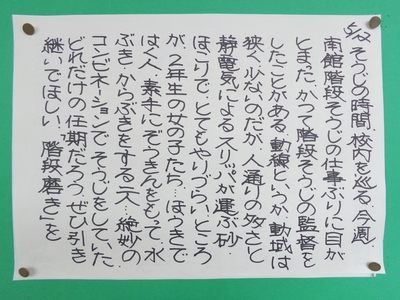 5/12 そうじの時間、校内を巡る。今週、
南館階段そうじの仕事ぶりに目が
とまった。かつて階段そうじの監督を
したことがある。動線というか、動域は
狭く少ないのだが、人通りの多さと
静電気によるスリッパが運ぶ砂・
ほこりで、とてもやりづらい。ところ
が、2年生の女の子たち、ほうきで
はく人、素手にぞうきんをもって、水
ぶき・からぶきをする二人、絶妙の
コンビネーションでそうじをしていた。
どれだけの任期だろう。ぜひ引き
継いでほしい、「階段磨き」を